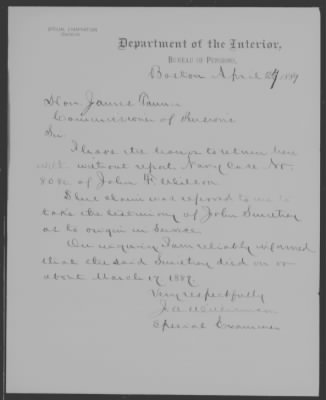 SPECIAL EXAMINATION
DIVISION.
Department of the Interior,
BUREAU OF PENSIONS,
Boston April 29 1889
Hon. James Tanner
Commissioner of Pensions
Sir
I have the honor to return here
with without report Navy Case No.
of John F.
The claim was referred to me to
take the testimony of John
as to origin in service
On inquiry I am reliably informed
that the said died on or
about March 17 1887.
Very respectfully
Special Examiner